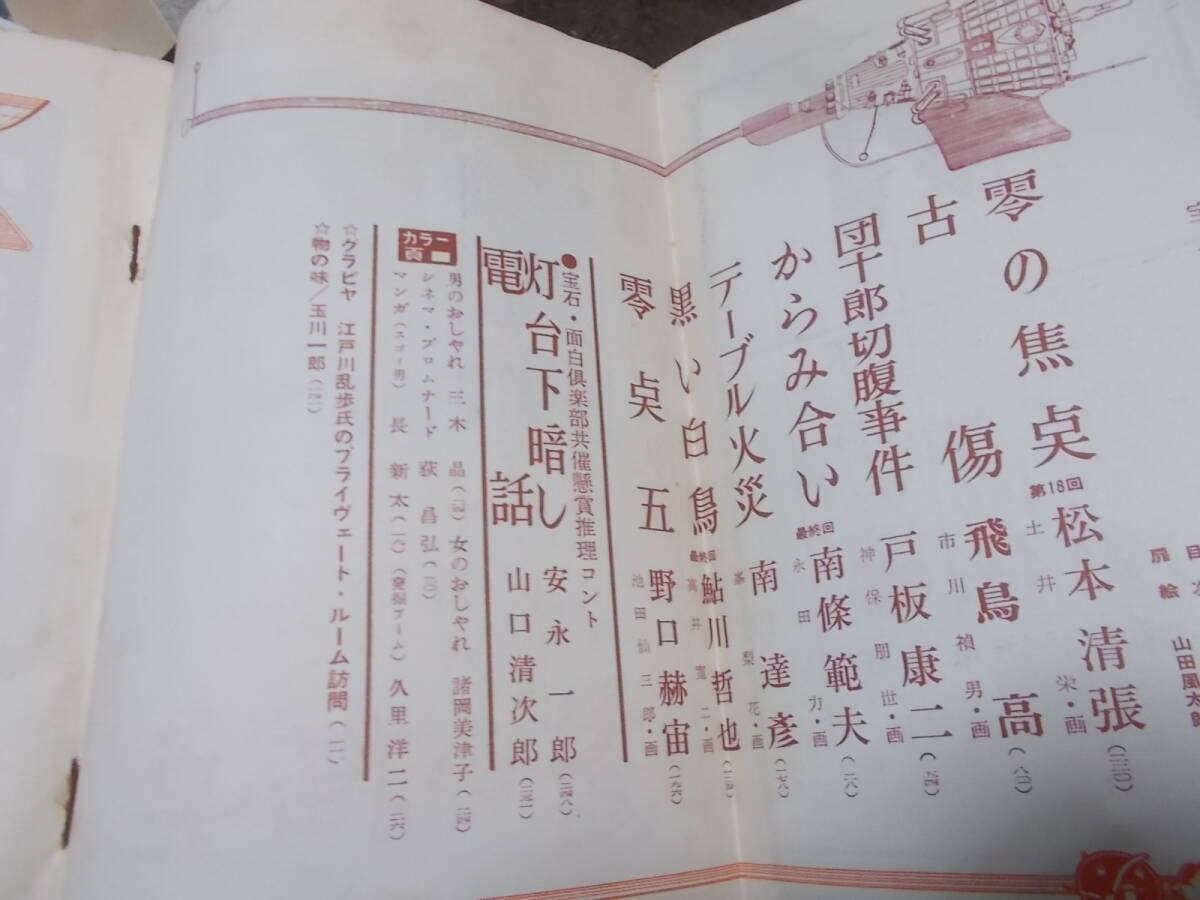 目
扉絵
山田風太郎
零の焦点 第18回 松本清張(二三〇)
土井栄・画
古傷 飛鳥高(八〇)
市川禎男・画
団十郎切腹事件 戸板康二(五四)
神保朋世・画
からみ合い 最終回 南條範夫(二八)
永田力・画
テーブル火災 南達彦(一七八)
峯梨花・画
黒い白鳥 最終回 鮎川哲也
高井寛二・画
零点五 野口赫宙(一八六)
池田仙三郎・画
●宝石・面白倶楽部共催懸賞推理コント
灯台下暗し 安永一郎(二四八)
電話 山口清次郎(二三一)
カラー頁
男のおしやれ 三木晶(二四) 女のおしやれ 諸岡美津子(二四)
シネマ・プロムナード 荻昌弘(二〇)
マンガ(スゴイ男) 長新太(一八)(発掘ブーム) 久里洋二(二六)
☆グラビヤ 江戸川乱歩氏のプライヴェート・ルーム訪問(一一)
☆物の味/玉川一郎